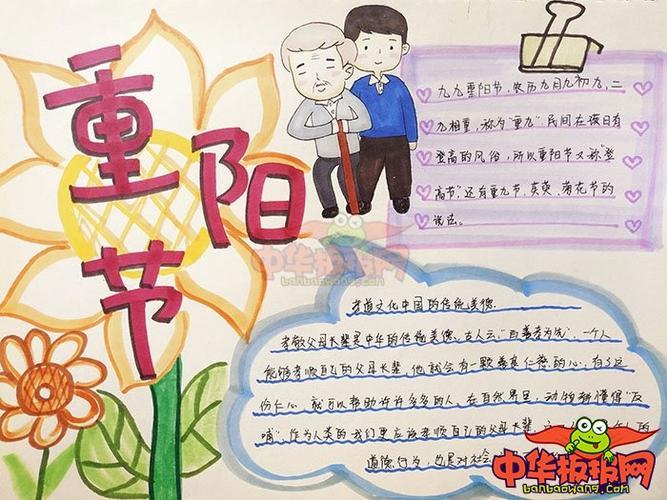 重阳节
九九重阳节,农历九月九初九,二
九相重,称为"重九"民间在该日有
登高的风俗,所以重阳节又称"登
高节"还有重九节、茱萸、菊花节的
说法。
中华板报网
banbaowang.com
孝道文化中国的传统美德
孝敬父母长辈是中华的传统美德、古人云:"百善孝为先",一个人
能够孝顺自己的父母长辈,他就会有一颗善良仁慈的心,有了这
份仁心,就可以帮助许许多多的人,在自然界里,动物都懂得"反
哺",作为人类的我们更应该孝顺自己的父母长辈,这 人的
道德行为,也是对社会
中华板报网
banbaowang.com